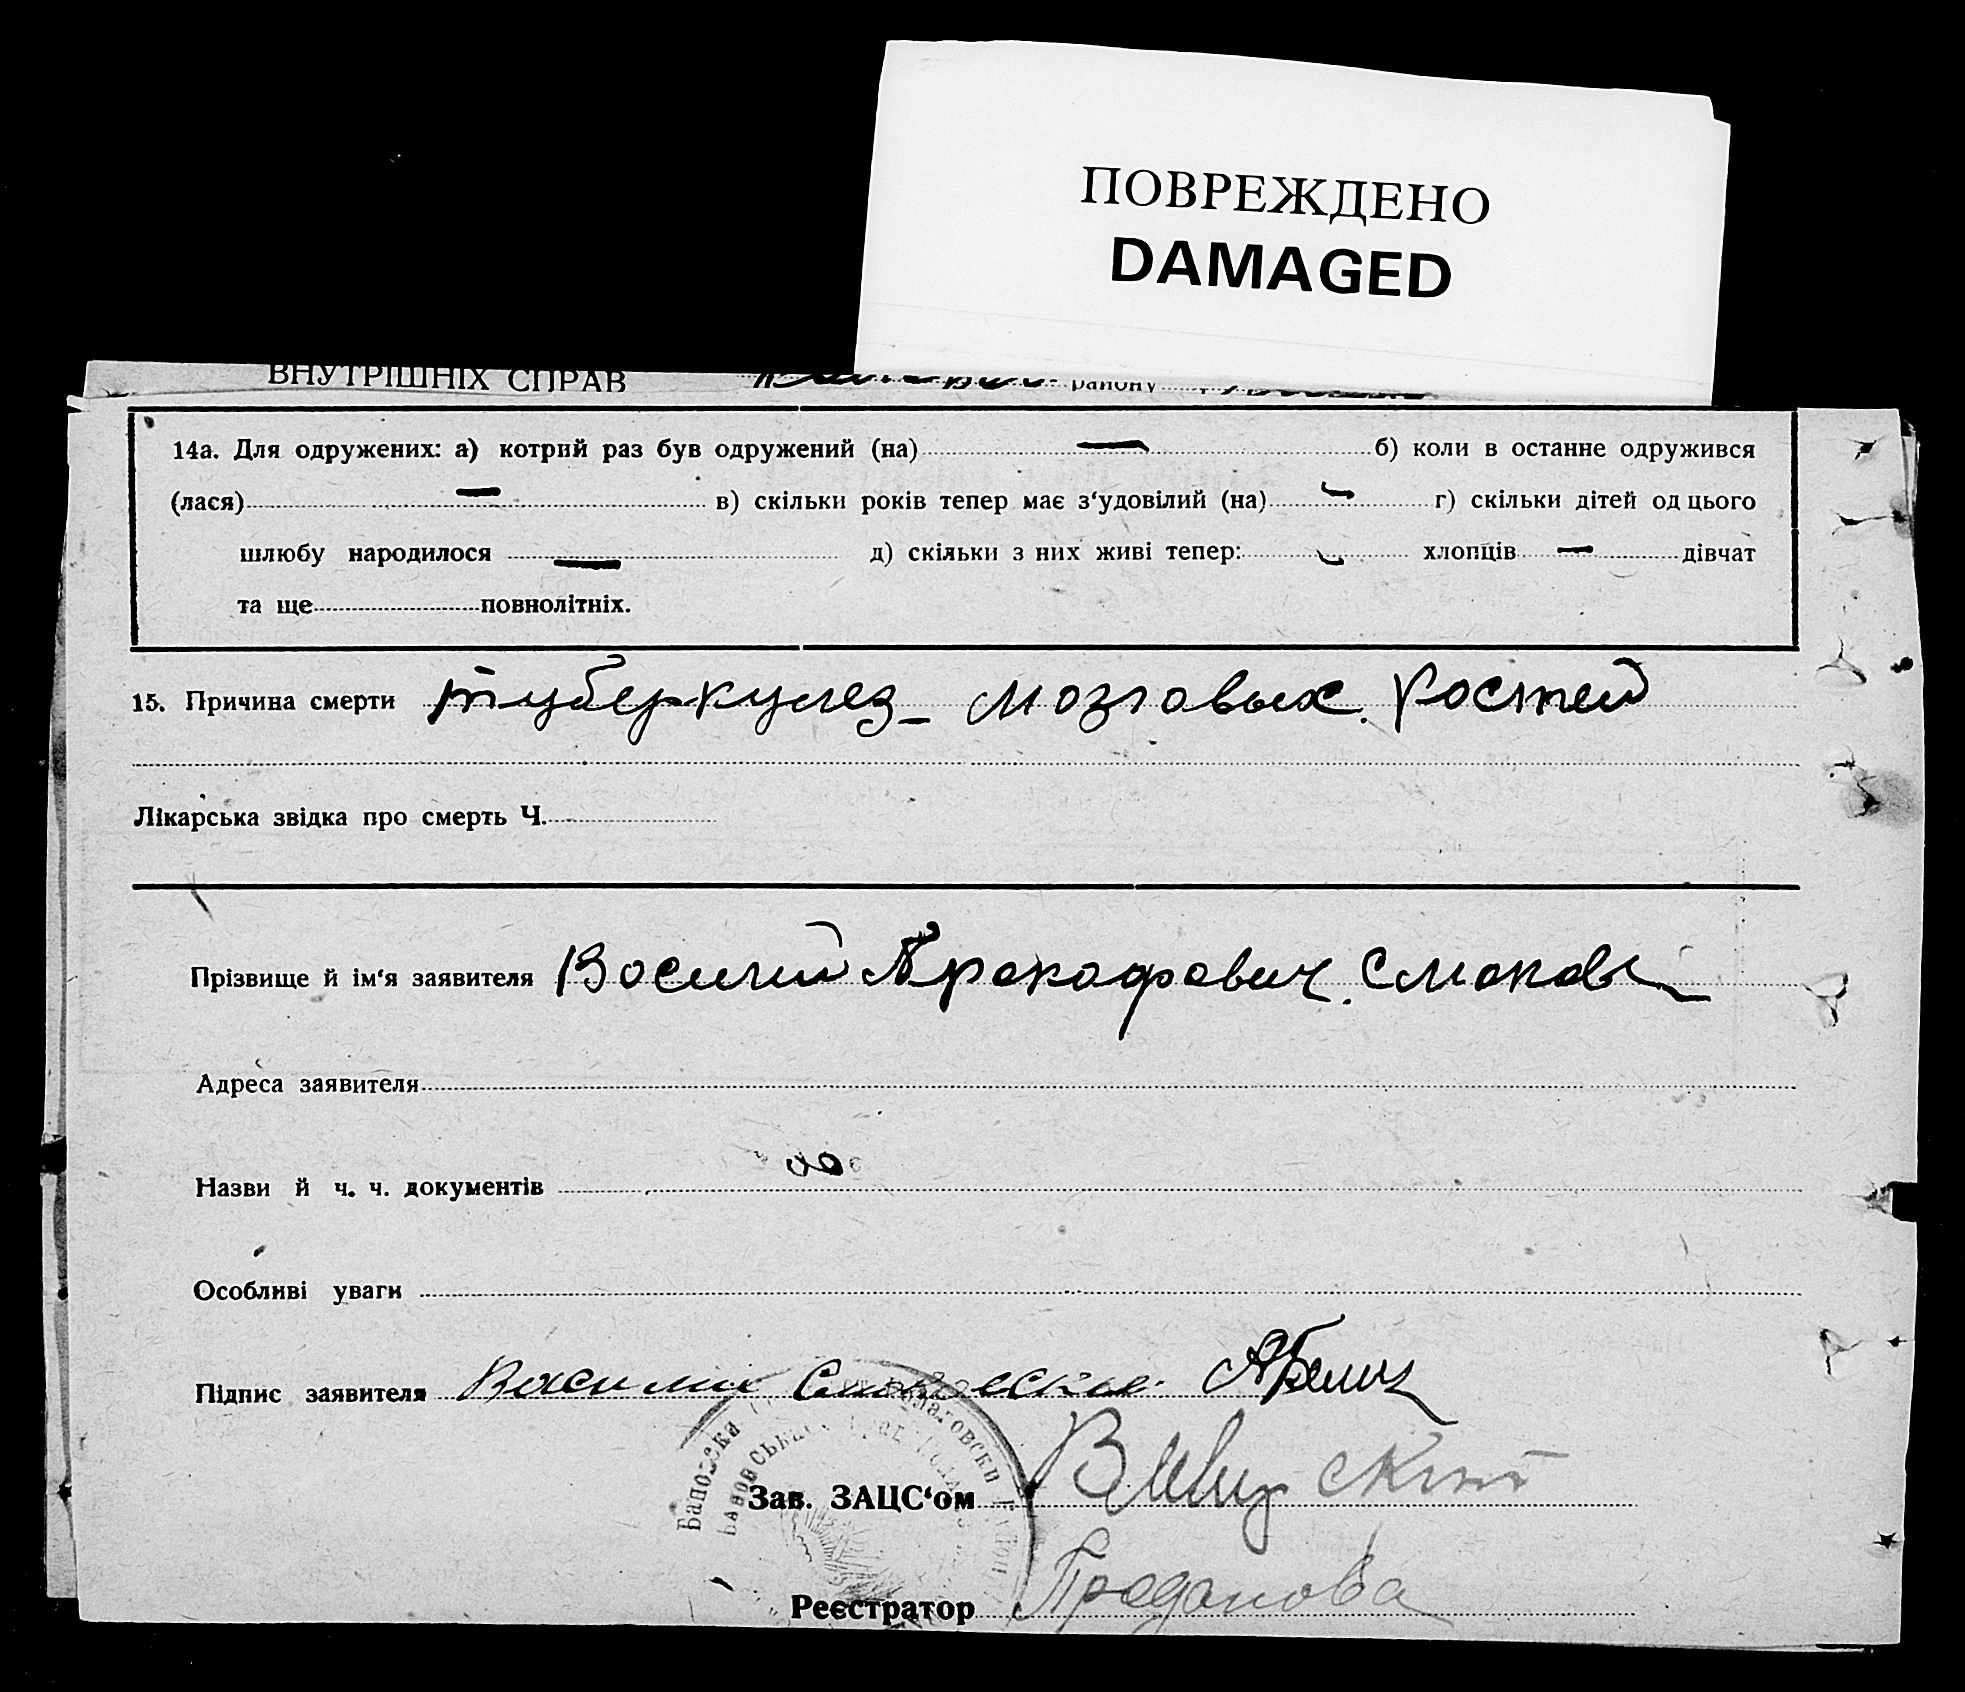 ПОВРЕЖДЕНО
DAMAGED
ВНУТРІШНІХ СПРАВ району
14а. Для одружених: а) котрий раз був одружений (на) — б) коли в останне одружився
(лася) — в) скільки років тепер має з‘удовілий (на) — г) скільки дітей од цього
шлюбу народилося — д) скільки з них живі тепер: — хлопців — дівчат
та ще повнолітніх.
15. Причина смерти туберкулез мозговых костей
Лікарська звідка про смерть Ч.
Прізвище й ім‘я заявителя Восилий Прокофович
Адреса заявителя
Назви й ч. ч. документів
Особливі уваги
Підпис заявителя Василий
Зав. ЗАЦС‘ом
Реєстратор Проданова